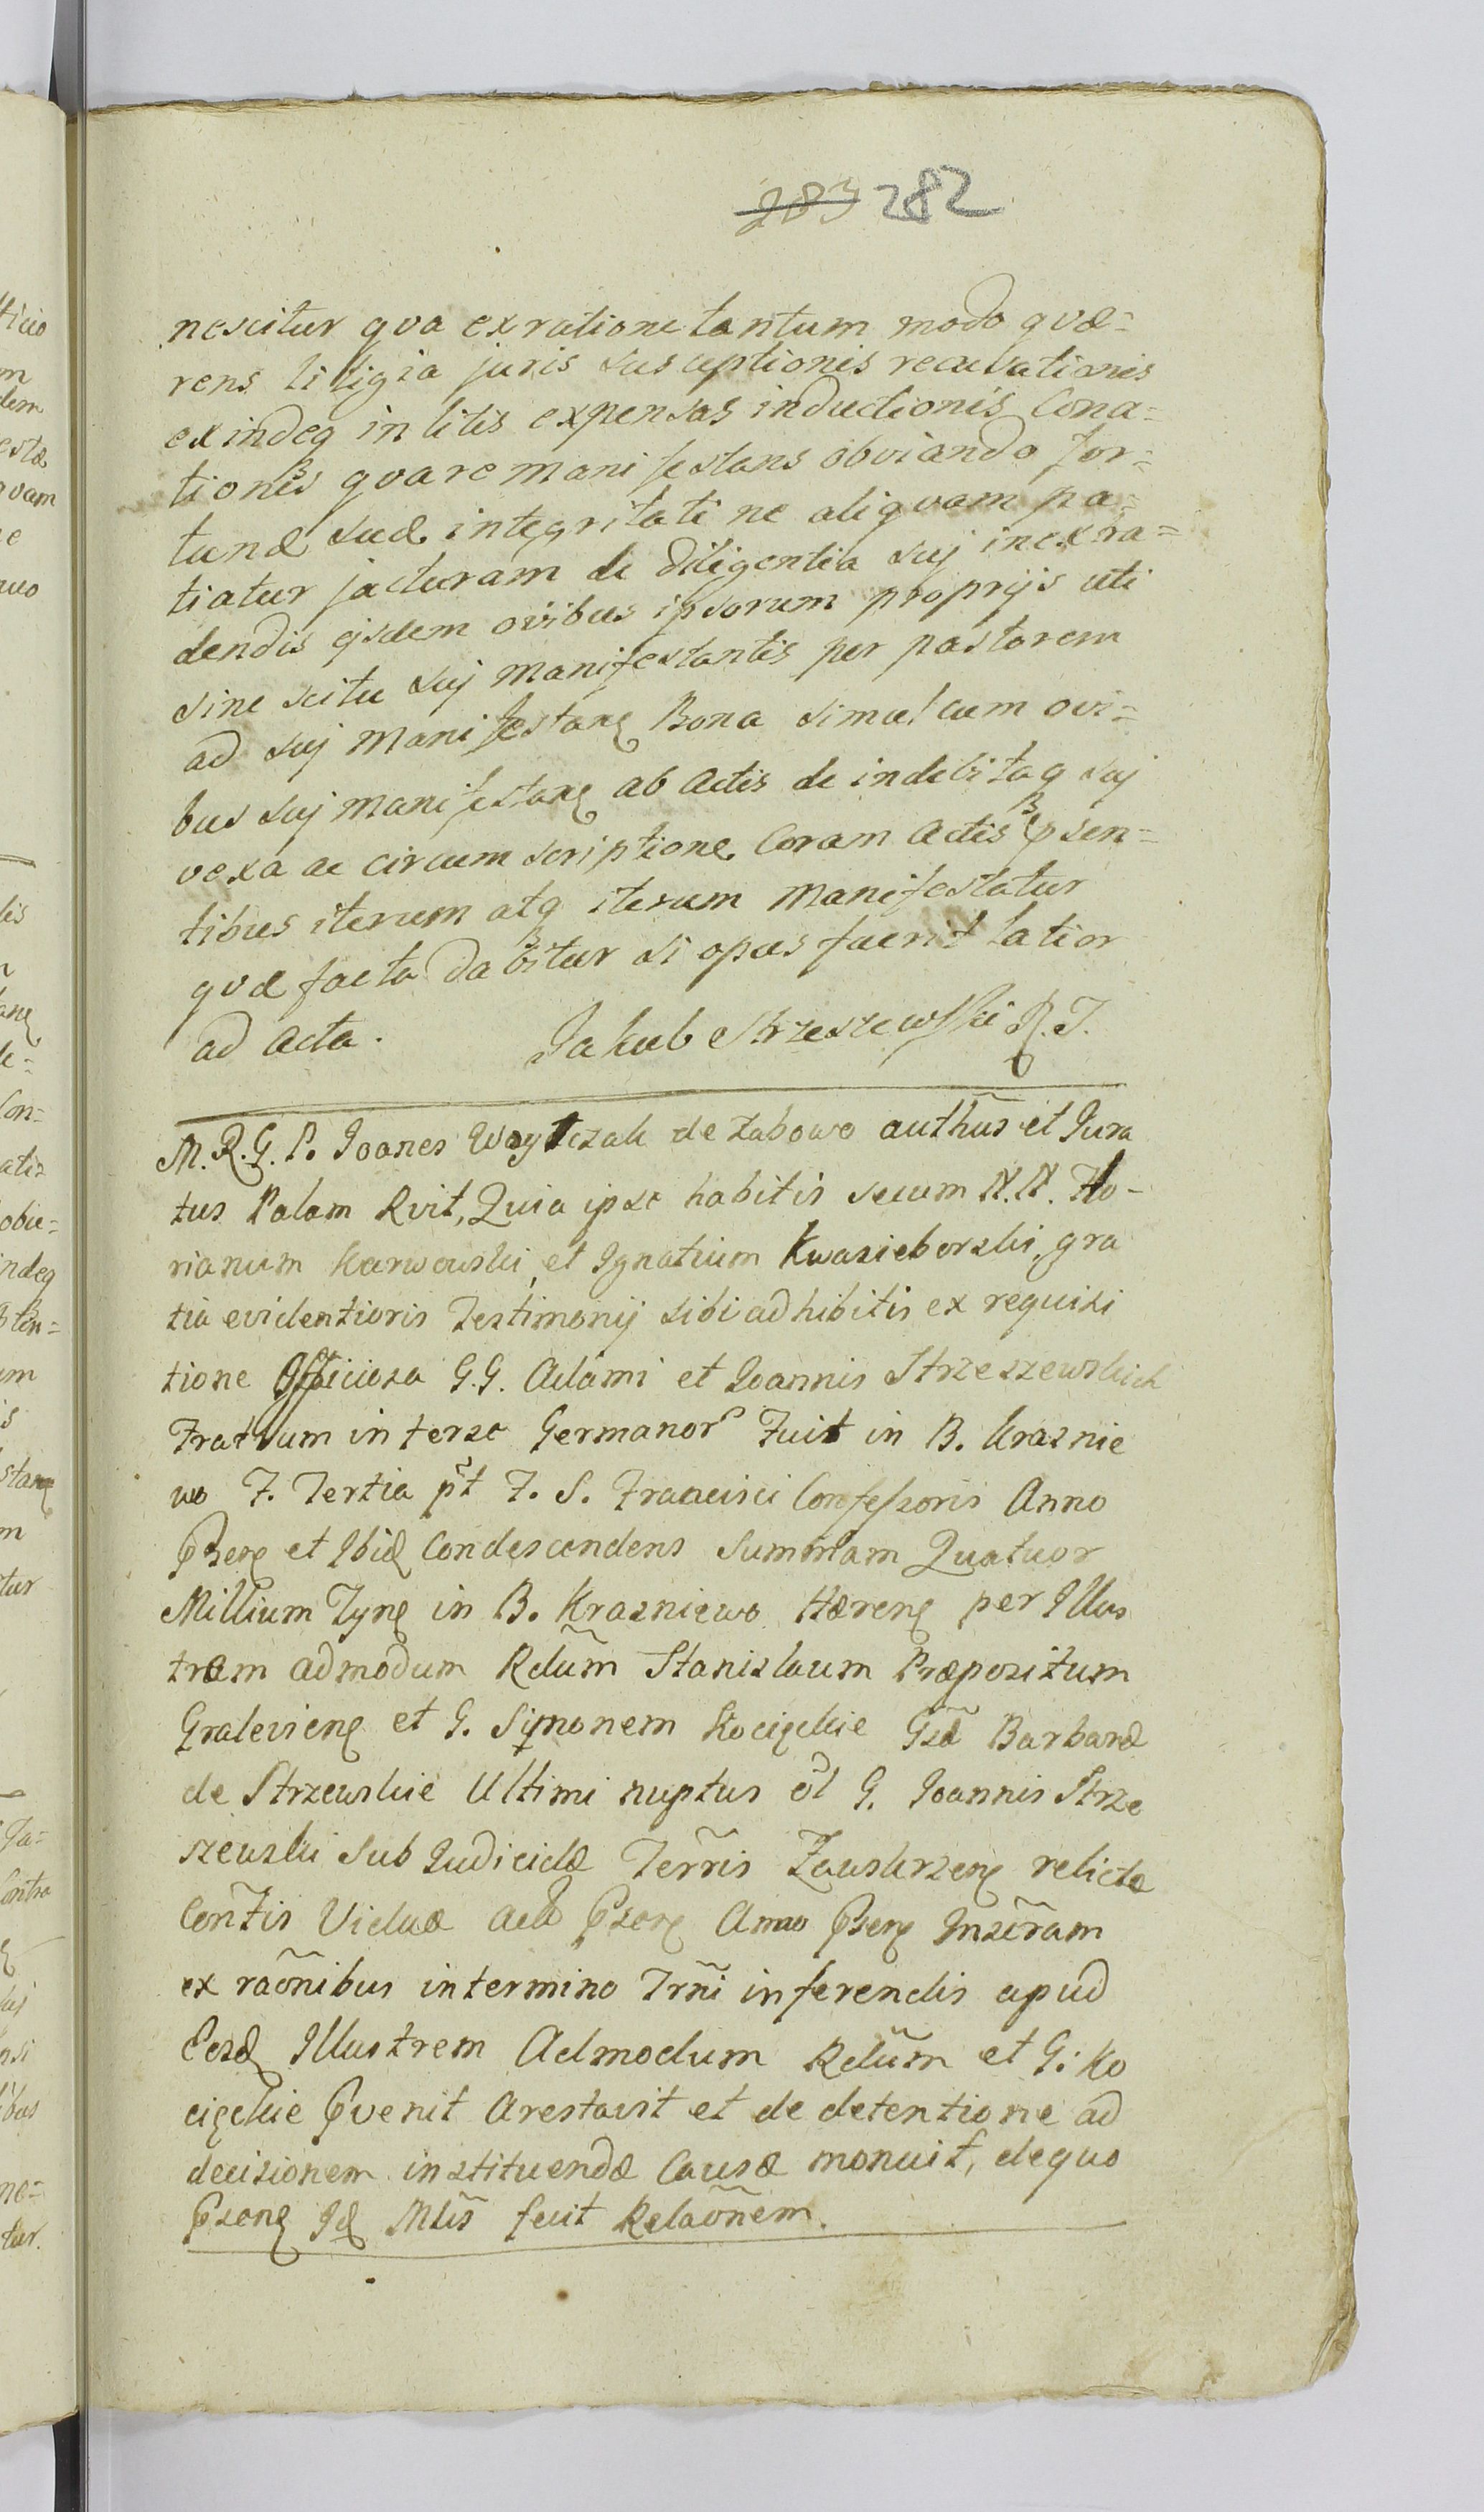 283 282
nescitur qva ex ratione tantum modo qvæ=
rens litigia juris susceptionis recusationis
exindeq in litis expensas inductionis Cona=
tiones qvare manifestans obviando for=
tunæ suæ integritati ne aliqvam pa=
tiatur jacturam de diligentia suj inexra=
dendis ejsdem ovibus ipsorum proprijs uti
sine scitu suj manifestantis per pastorem
ad suj manifestanę Bona simul cum ovi=
bus suj manifestanę ab actis de indebitaq suj
vexa ac circum scriptione Coram actis psen=
tibus iterum atq iterum manifestatur
qvæ facta dabitur si opus fuerit latior
ad acta. Jakub Strzeszewski R.T.
M.R.G.P. Joanes Woytczak de Zabowo authus et Jura
tus Palam Rvit, Quia ipse habitis secum N.N. Flo-
rianum Karwowski, et Ignatium Kwasieborski, gra
tia evidentioris Testimonij sibi adhibitis ex requisi
tione Officiosa G.G. Adami et Joannis Strzeszewskich
Fratrum interse Germanor Fuit in B. Krasnie
wo F. Tertia pt F. S. Francisci Confessoris Anno
Psenę et Ibid Condescendens Summam Quatuor
Millium Tynę in B. Krasniewo Hærenę per Illus
trem admodum Rdum Stanislaum Præpositum
Gralevienę et G. Simonem Kocięckie Gsæ Barbaræ
de Strzewskie Ultimi nuptus ol G. Joannis Strze
szewski Sub Judicidæ Terris Zawskrzenę relictæ
Contis Viduæ Psenę Anno Psenę Inscram
ex raonibus intermino Trni inferendis apud
Eosd Illustrem Admodum Rdum et G. Ko
cięckie Pvenit Arestavit et de detentione ad
decisionem instituendæ Causæ monuit, dequo
Psenę Id Mlis fecit Relaonem.